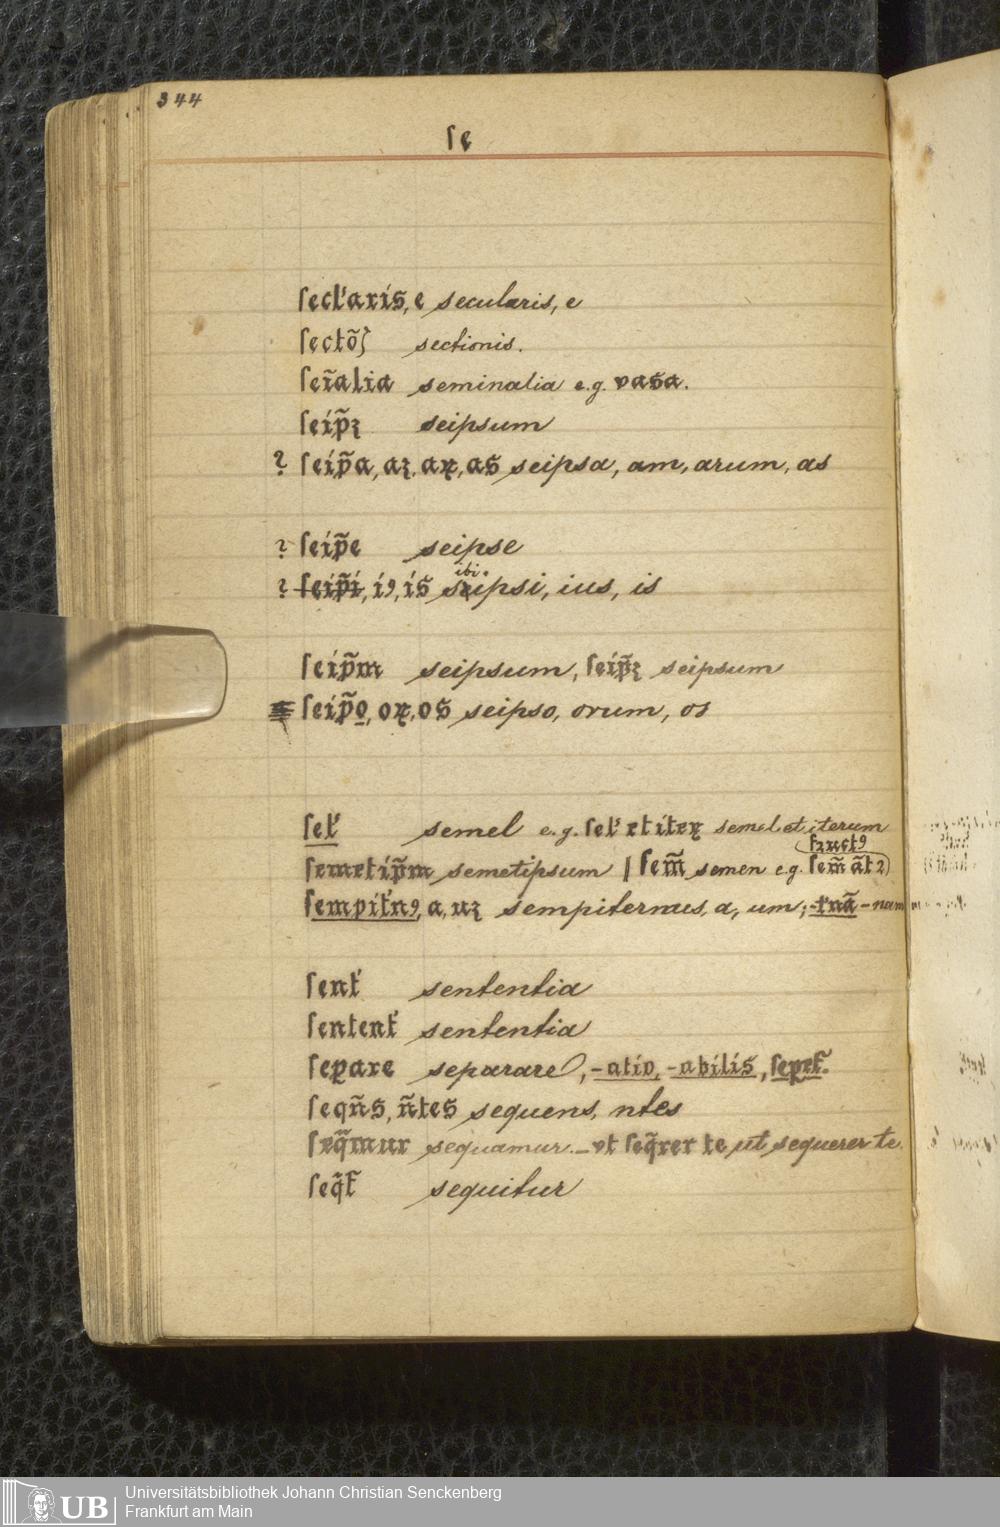 344
ſe
ſecl'aris, e secularis, e
ſectõ⸥ sectionis.
ſeĩalia seminalia e.g. vasa.
ſeip̃ꝫ seipsum
? ſeip̃a, aꝫ, aꝝ, as seipsa, am, arum, as
? ſeip̃e seipse
ibi.
? ſeip̃i, iꝰ, is seipsi, ius, is
ſeip̃m seipsum, ſeip̃ꝫ seipsum
ſeip̃o, oꝝ, os seipso, orum, os
ſel' semel e.g. ſel' et iteꝝ semel et iterum
ſemetip̃m semetipsum | ſem̃ semen e.g. ſem̃ ãt
ſempit'nꝰ, a, uꝫ sempiternus, a, um; -t'nã -nam
ſent' sententia
ſentent' sententia
ſeꝑare separare, -atio, -abilis,
ſeqñs, ñtes sequens, ntes
ſeq̃mur sequamur. - vt ſeq̃rer te ut sequerer te.
ſeq̃t' sequitur
UB Universitätsbibliothek Johann Christian Senckenberg
Frankfurt am Main